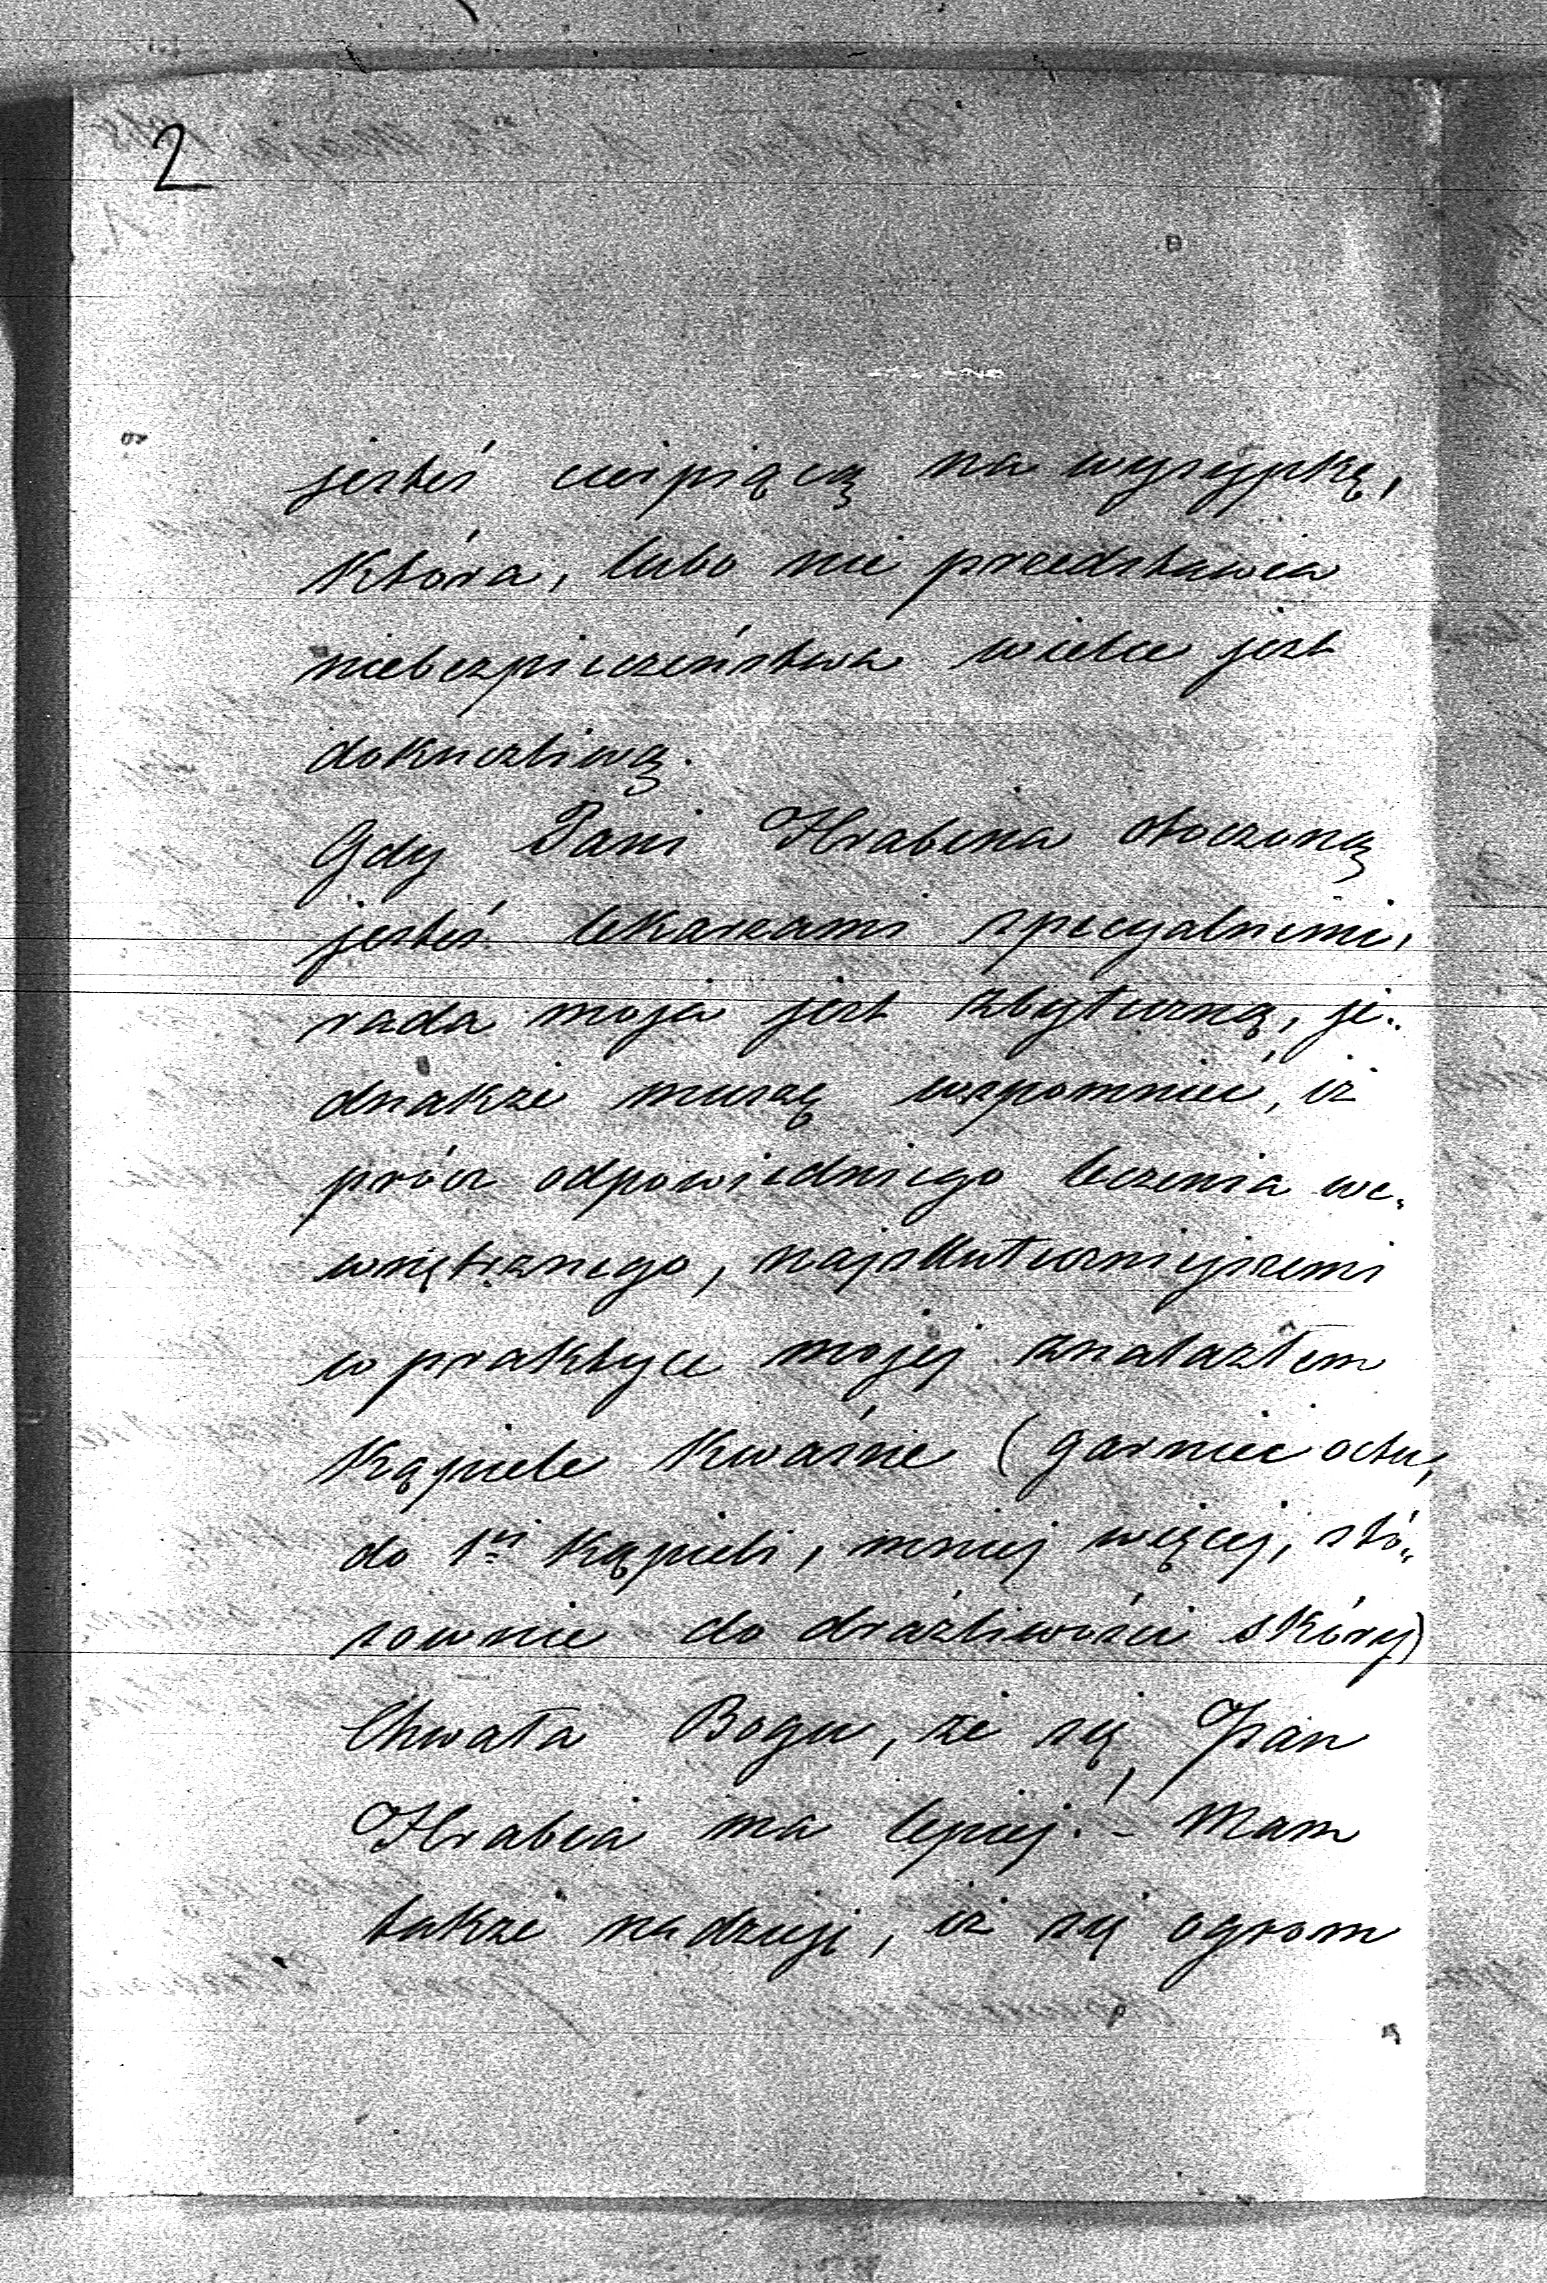 2
jesteś cierpiącą na wysypkę,
która, lubo nie przedstawia
niebezpieczeństwa wielce jest
dokuczliwą.
Gdy Pani Hrabina otoczoną
jesteś lekarzami specyalnemi,
rada moja jest zbyteczną, je„
dnakże muszę wspomnieć, iż
prócz odpowiedniego leczenia we„
wnętrznego, najskuteczniejszemi
w praktyce mojej znalazłem
Kąpiele Kwaśne (garniec octu,
do 1ej Kąpieli, mniej więcej, stó„
sownie do drażliwości skóry)
Chwała Bogu, że się Pan
Hrabia ma lepiej! – Mam
także nadzieję, iż się ogrom